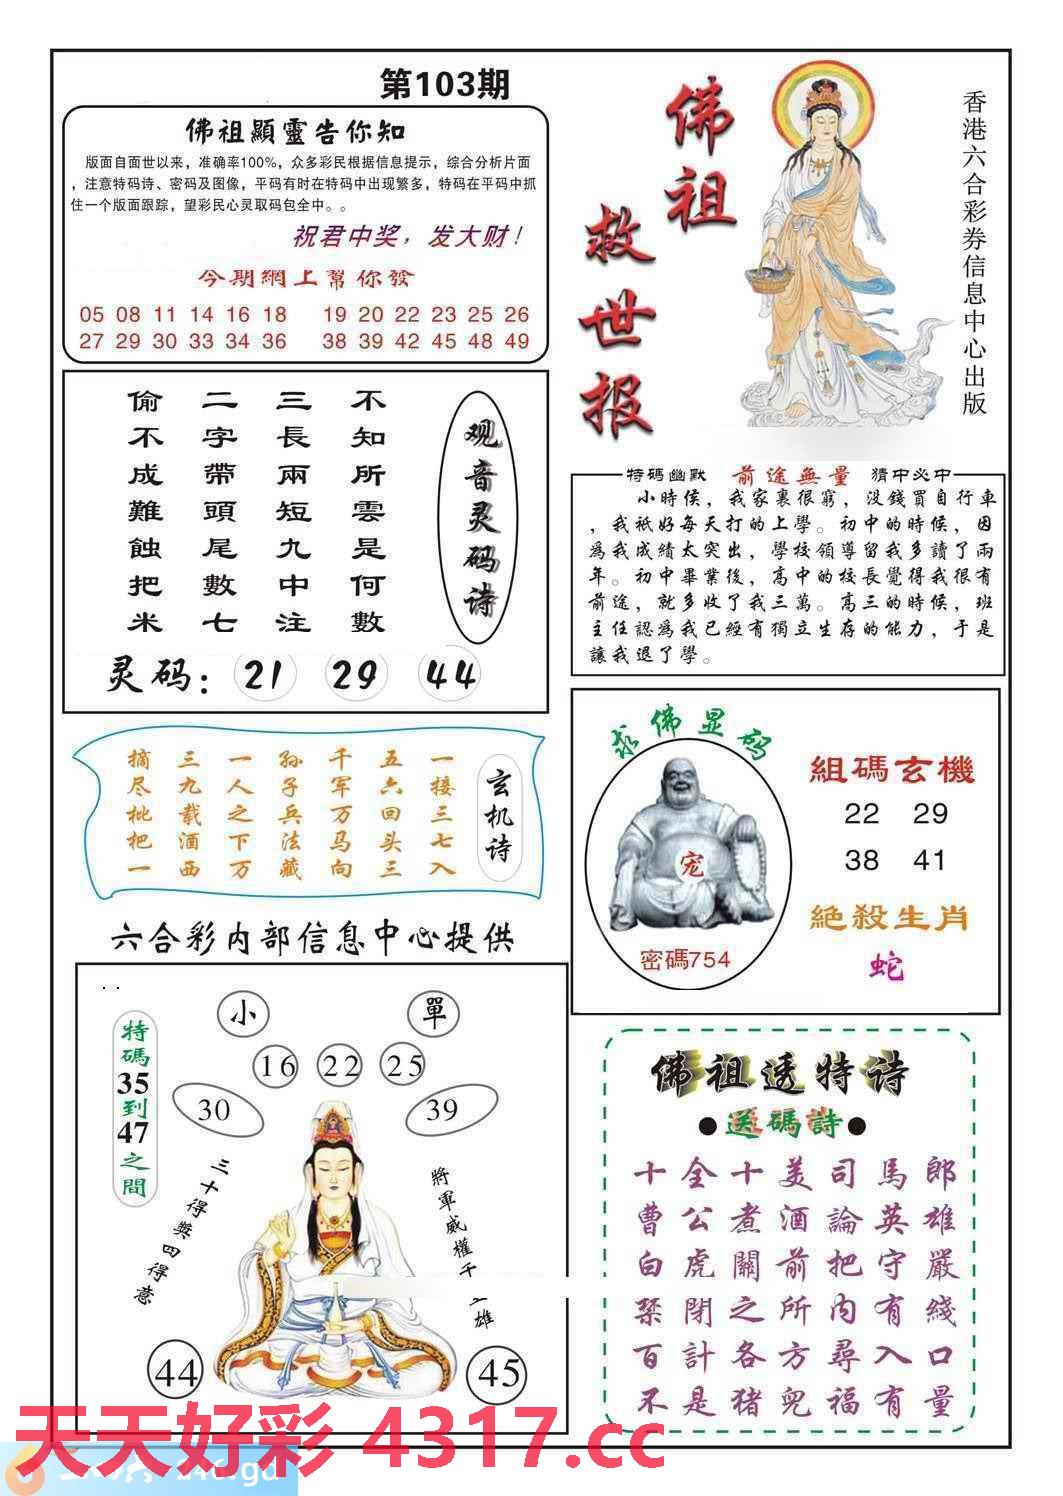 第103期
佛祖顯靈告你知
版面自面世以来，准确率100%，众多彩民根据信息提示，综合分析片面
，注意特码诗、密码及图像，平码有时在特码中出现繁多，特码在平码中抓
住一个版面跟踪，望彩民心灵取码包全中。。
祝君中奖，发大财！
今期網上幫你發
05 08 11 14 16 18 19 20 22 23 25 26
27 29 30 33 34 36 38 39 42 45 48 49
佛祖
救世报
香港六合彩券信息中心出版
观音灵码诗
不知所雲是何數
三長兩短九中注
二字帶頭尾數七
偷不成難蝕把米
灵码：21 29 44
特碼幽默 前途無量 猜中必中
小時侯，我家裏很窮，没錢買自行車
，我衹好每天打的上學。初中的時候，因
爲我成績太突出，學校領導留我多讀了兩
年。初中畢業後，高中的校長覺得我很有
前途，就多收了我三萬。高三的時候，班
主任認爲我已經有獨立生存的能力，于是
讓我退了學。
玄机诗
一接三七入
五六回头三
千军万马向
孙子兵法藏
一人之下万
三九载酒西
摘尽枇把一
求佛显码
宠
密碼754
組碼玄機
22 29
38 41
絕殺生肖
蛇
六合彩内部信息中心提供
小 單
16 22 25
30 39
特碼35到47之間
三十得獎四得意
將軍威權千
雄
44 45
佛祖透特诗
●送碼詩●
十全十美司馬郎
曹公煮酒論英雄
白虎關前把守嚴
禁閉之所内有綫
百計各方尋入口
不是猪兜福有量
天天好彩 4317.cc
246.gd